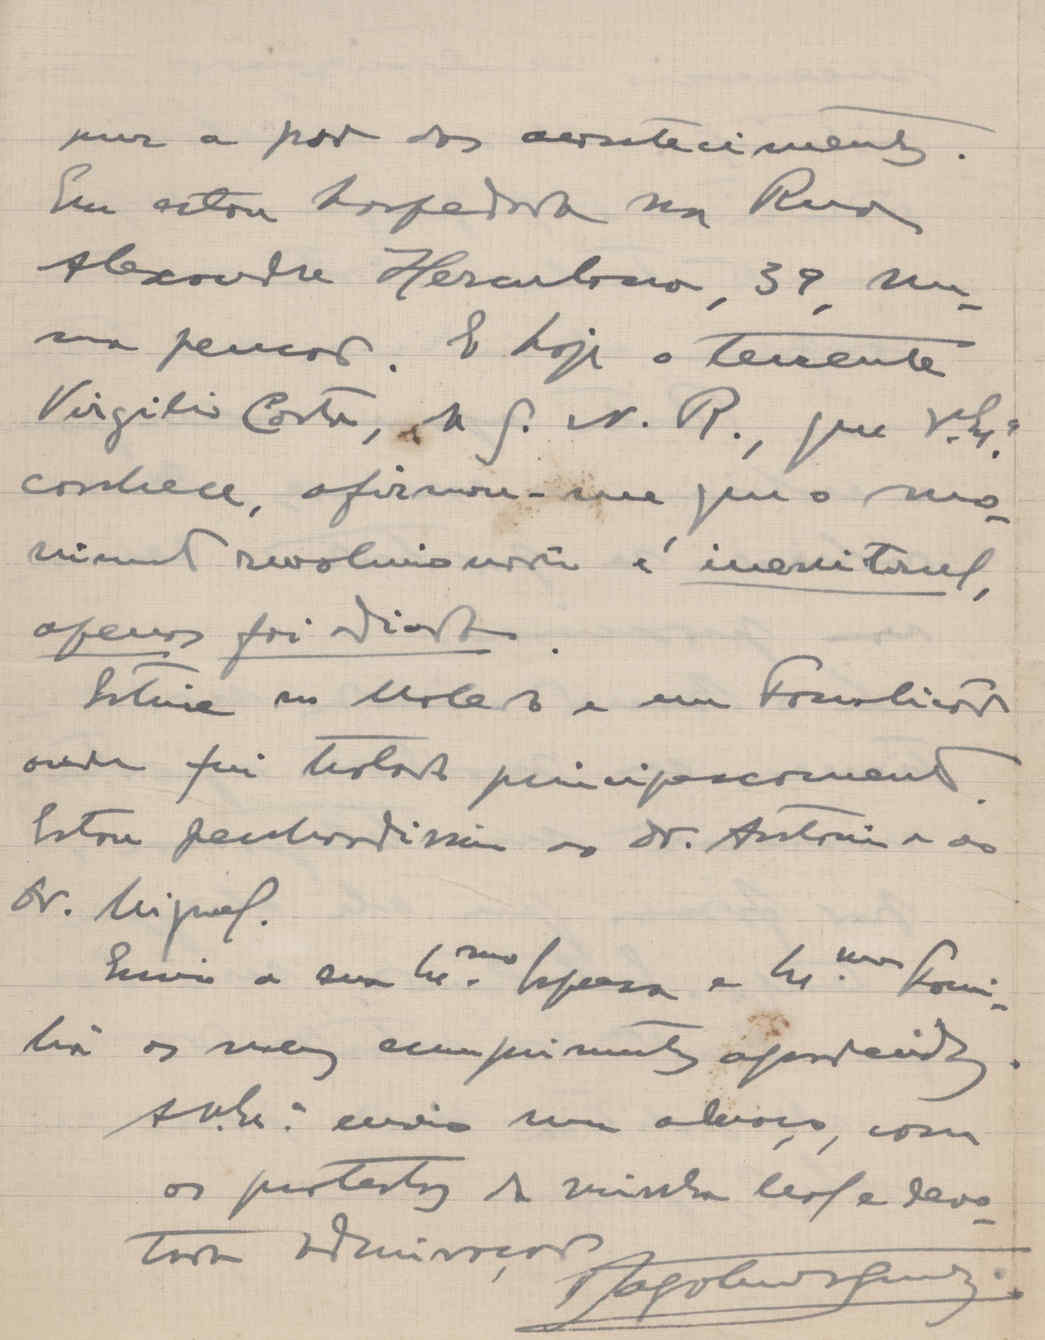 nuar a par dos acontecimentos.
Eu estou hospedado na Rua
Alexandre Herculano, 39, nu-
ma pensão. E hoje o tenente
Virgilio Costa, da G. N. R., que V. Ex.ª
conhece, afirmou-me que o mo-
vimento revolucionario é inevitavel,
apenas foi adiado.
Estive no Moledo e em Famalicão
onde fui tratado principescamente.
Estou penhoradissimo ao dr. Antonio e ao
dr. Miguel.
Envio a sua Ex.ma Esposa e Ex.ma Fami-
lia os meus cumprimentos agradecidos.
A V. Ex.ª envio um abraço, com
os protestos da minha leal e devo-
tada admiração